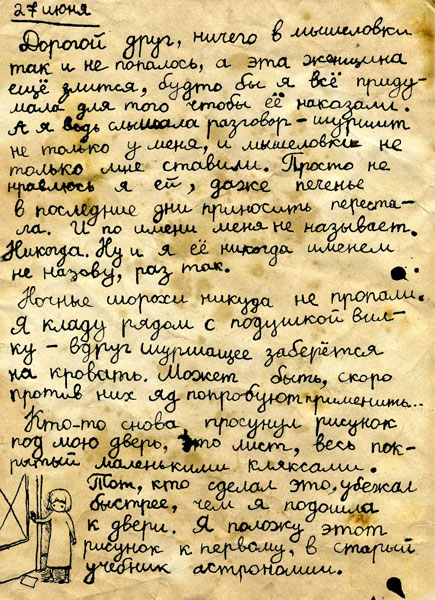 27 июня
Дорогой друг, ничего в мышеловки
так и не попалось, а эта женщина
ещё злится, будто бы я всё приду-
мала для того чтобы её наказали.
А я ведь слышала разговор – шуршит
не только у меня, и мышеловки не
только мне ставили. Просто не
нравлюсь я ей, даже печенье
в последние дни приносить переста-
ла. И по имени меня не называет.
Никогда. Ну и я её никогда именем
не назову, раз так.
Ночные шорохи никуда не пропали.
Я кладу рядом с подушкой вил-
ку – вдруг шуршащее заберётся
на кровать. Может быть, скоро
против них яд попробуют применить...
Кто-то снова просунул рисунок
под мою дверь, это лист, весь пок-
рытый маленькими кляксами.
Тот, кто сделал это, убежал
быстрее, чем я подошла
к двери. Я положу этот
рисунок к первому, в старый
учебник астрономии.